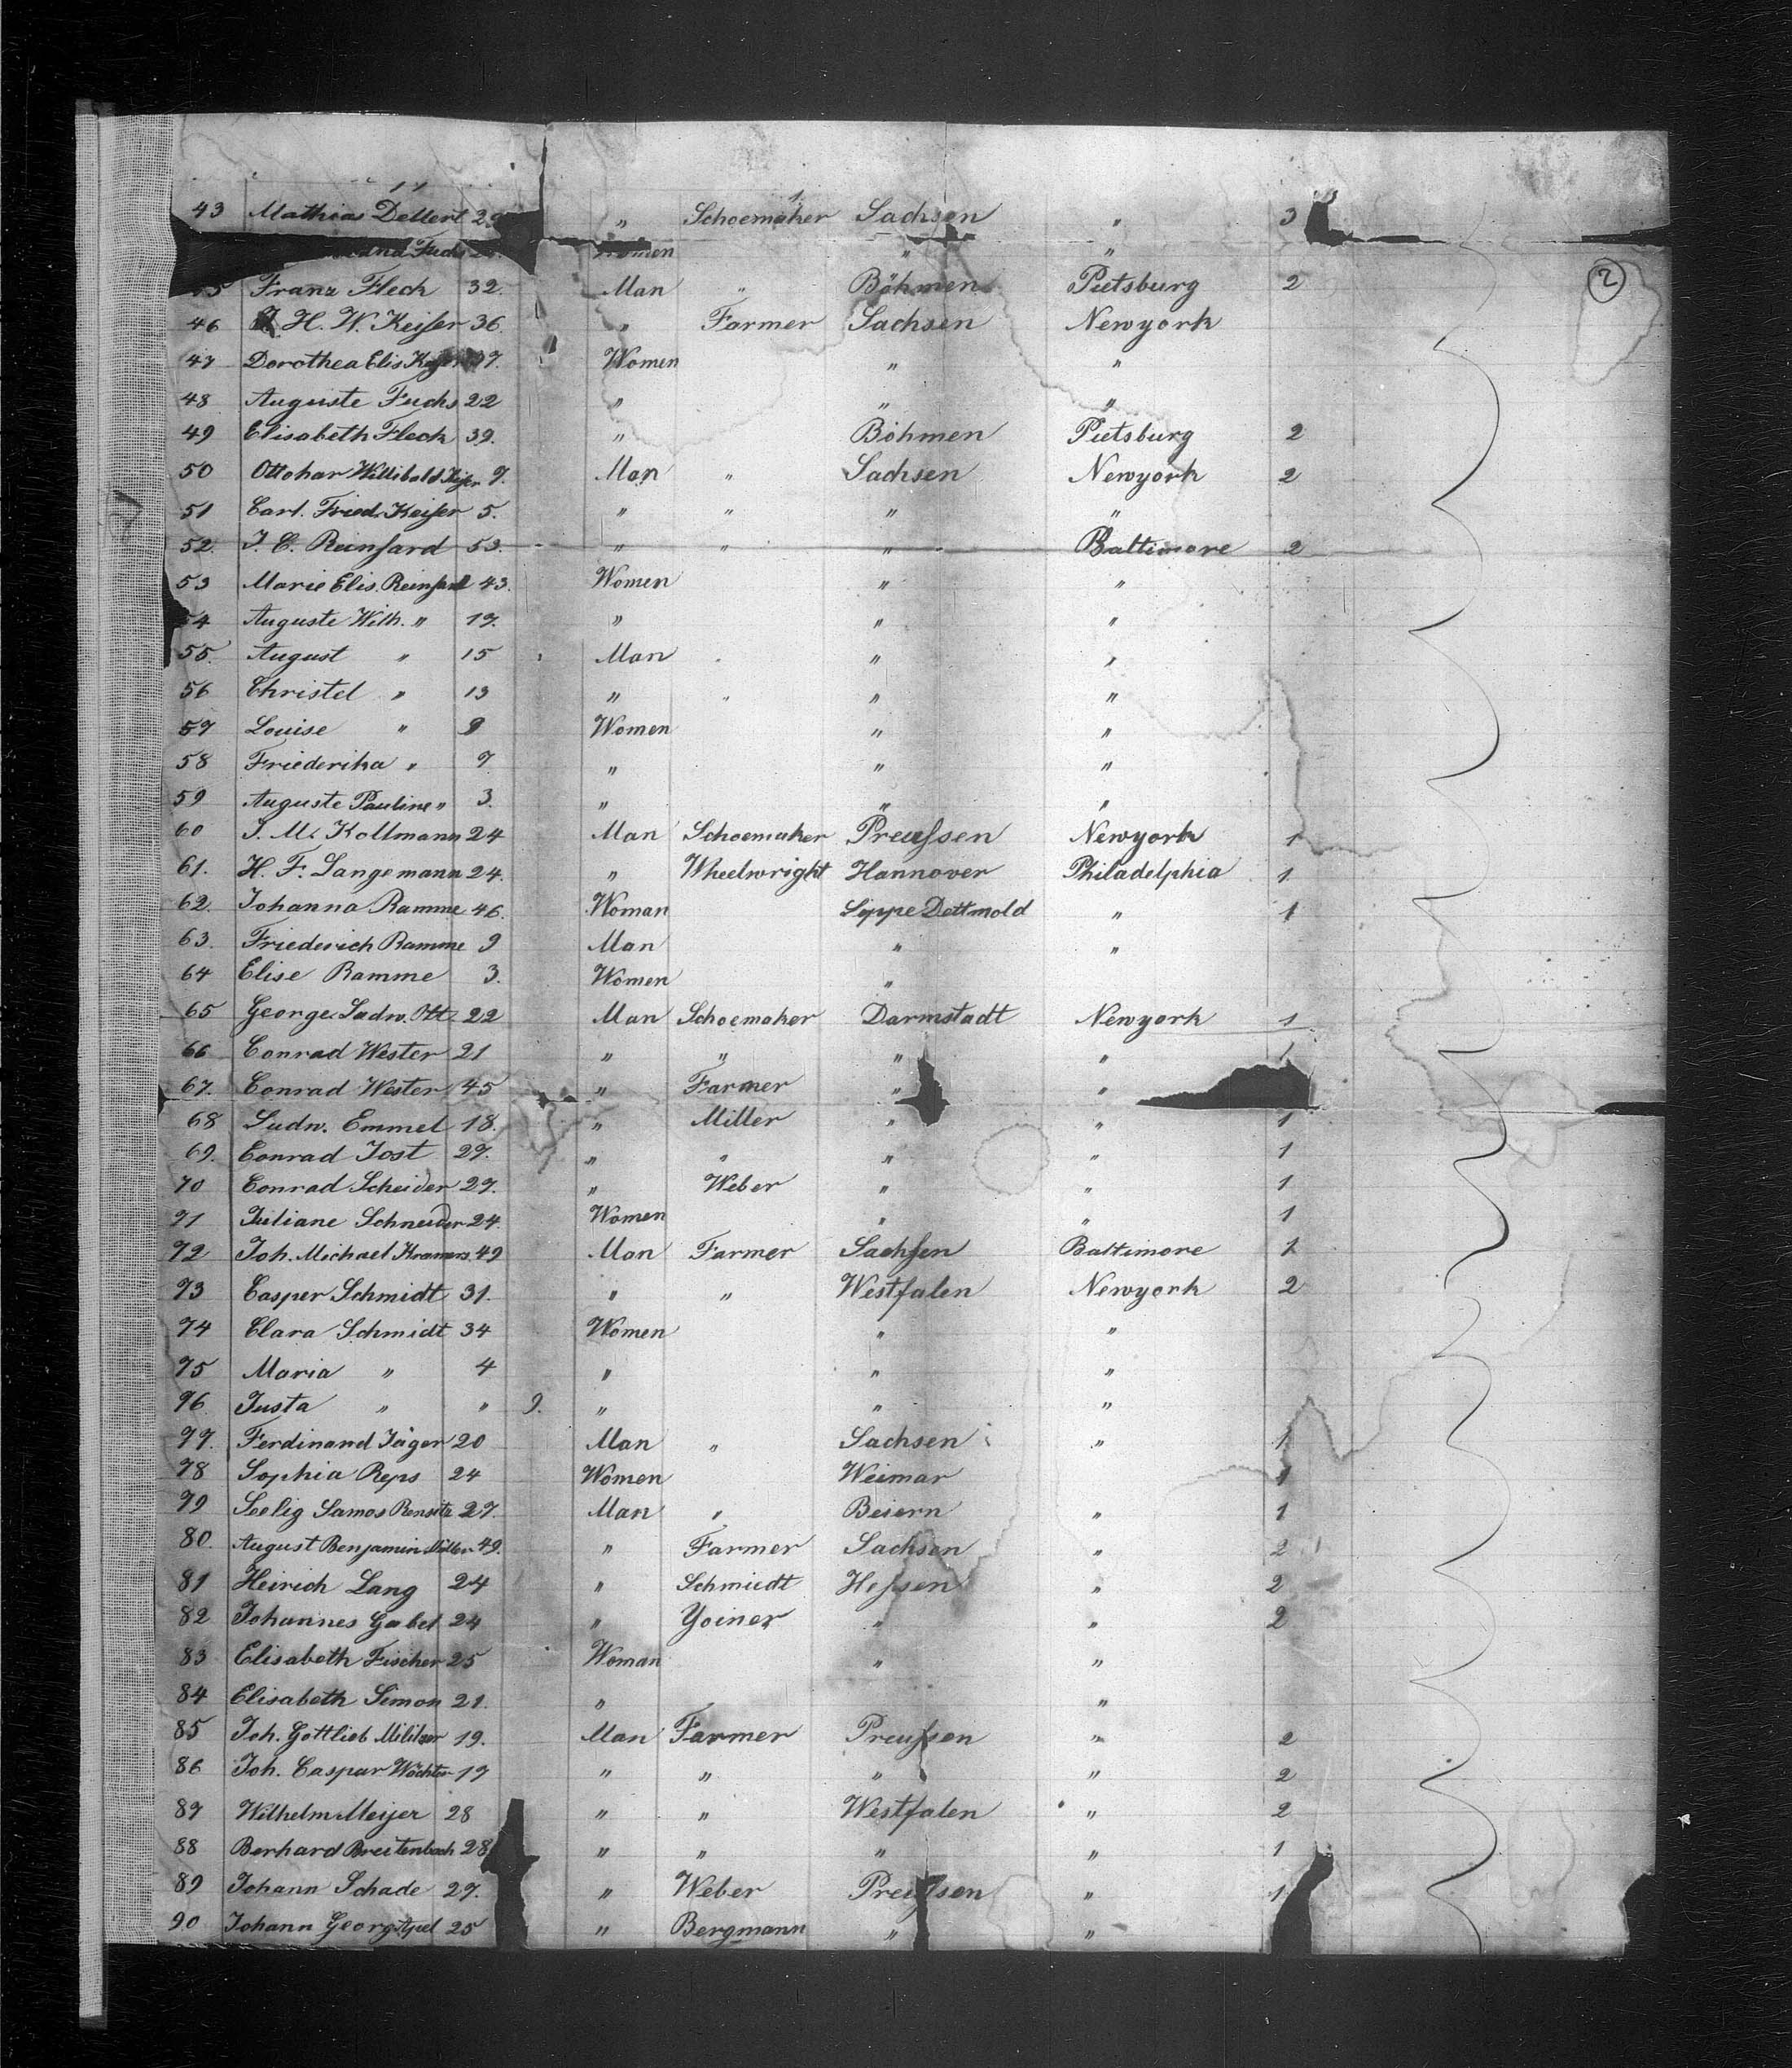 43 Mathias Dellert 29 " Schoemaker Sachsen " 3
Fuchs Women " "
Franz Flech 32. Man " Böhmen Pietsburg 2
46 H. W. Keiser 36. " Farmer Sachsen Newyork
47 Dorothea Elis 37. Women " "
48 Auguste Fuchs 22 " " "
49 Elisabeth Flech 39. " Böhmen Pietsburg 2
50 Ottohar Willibald Keiser 7. Man " Sachsen Newyork 2
51 Carl. Fried. Keiser 5. " " " "
52. J. C. Reinhard 53. " " " Baltimore 2
53 Marie Elis. Reinhard 43. Women " "
54 Auguste Wilh. " 17. " " "
55. August " 15 Man " "
56 Christel " 13 " " "
57 Louise " 9 Women " "
58 Friederika " 7 " " "
59 Auguste Pauline " 3. " " "
60 J. M. Kollmann 24 Man Schoemaker Preussen Newyork 1
61. H. F. Langemann 24. " Wheelwright Hannover Philadelphia 1
62. Johanna Ramme 46. Woman Lippe Dettmold " 1
63. Friederich Ramme 9 Man " "
64 Elise Ramme 3. Women "
65 George Ludw. Ott 22 Man Schoemaker Darmstadt Newyork 1
66 Conrad Wester 21 " " " " 1
67. Conrad Wester 45 " Farmer " "
68 Ludw. Emmel 18. " Miller " " 1
69. Conrad Jost 27. " " " " 1
70 Conrad Scheider 27. " Weber " " 1
71 Juliane Schneider 24. Women " " 1
72 Joh. Michael Kramers. 49 Man Farmer Sachsen Baltimore 1
73 Casper Schmidt 31. " " Westfalen Newyork 2
74 Clara Schmidt 34 Women " "
75 Maria " 4 " " "
76 Justa " " 9. " " "
77. Ferdinand Jäger 20 Man " Sachsen " 1
78 Sophia Reps 24 Women Weimar 1
79 Seelig Samos 27. Man " Beiern " 1
80. August Benjamin Müller 49. " Farmer Sachsen " 2
81 Heirich Lang 24 " Schmiedt Hessen " 2
82 Johannes Gabel 24 " Yoiner " " 2
83 Elisabeth Fischer 25 Woman " "
84 Elisabeth Simon 21. " "
85 Joh. Gottlieb Militzer 19. Man Farmer Preussen " 2
86 Joh. Caspar Wächter 17 " " " " 2
87 Wilhelm Meijer 28 " " Westfalen " 2
88 Berhard Breitenbach 28 " " " " 1
89 Johann Schade 27. " Weber Preussen " 1
90 Johann Georg Apel 25 " Bergmann " "
2